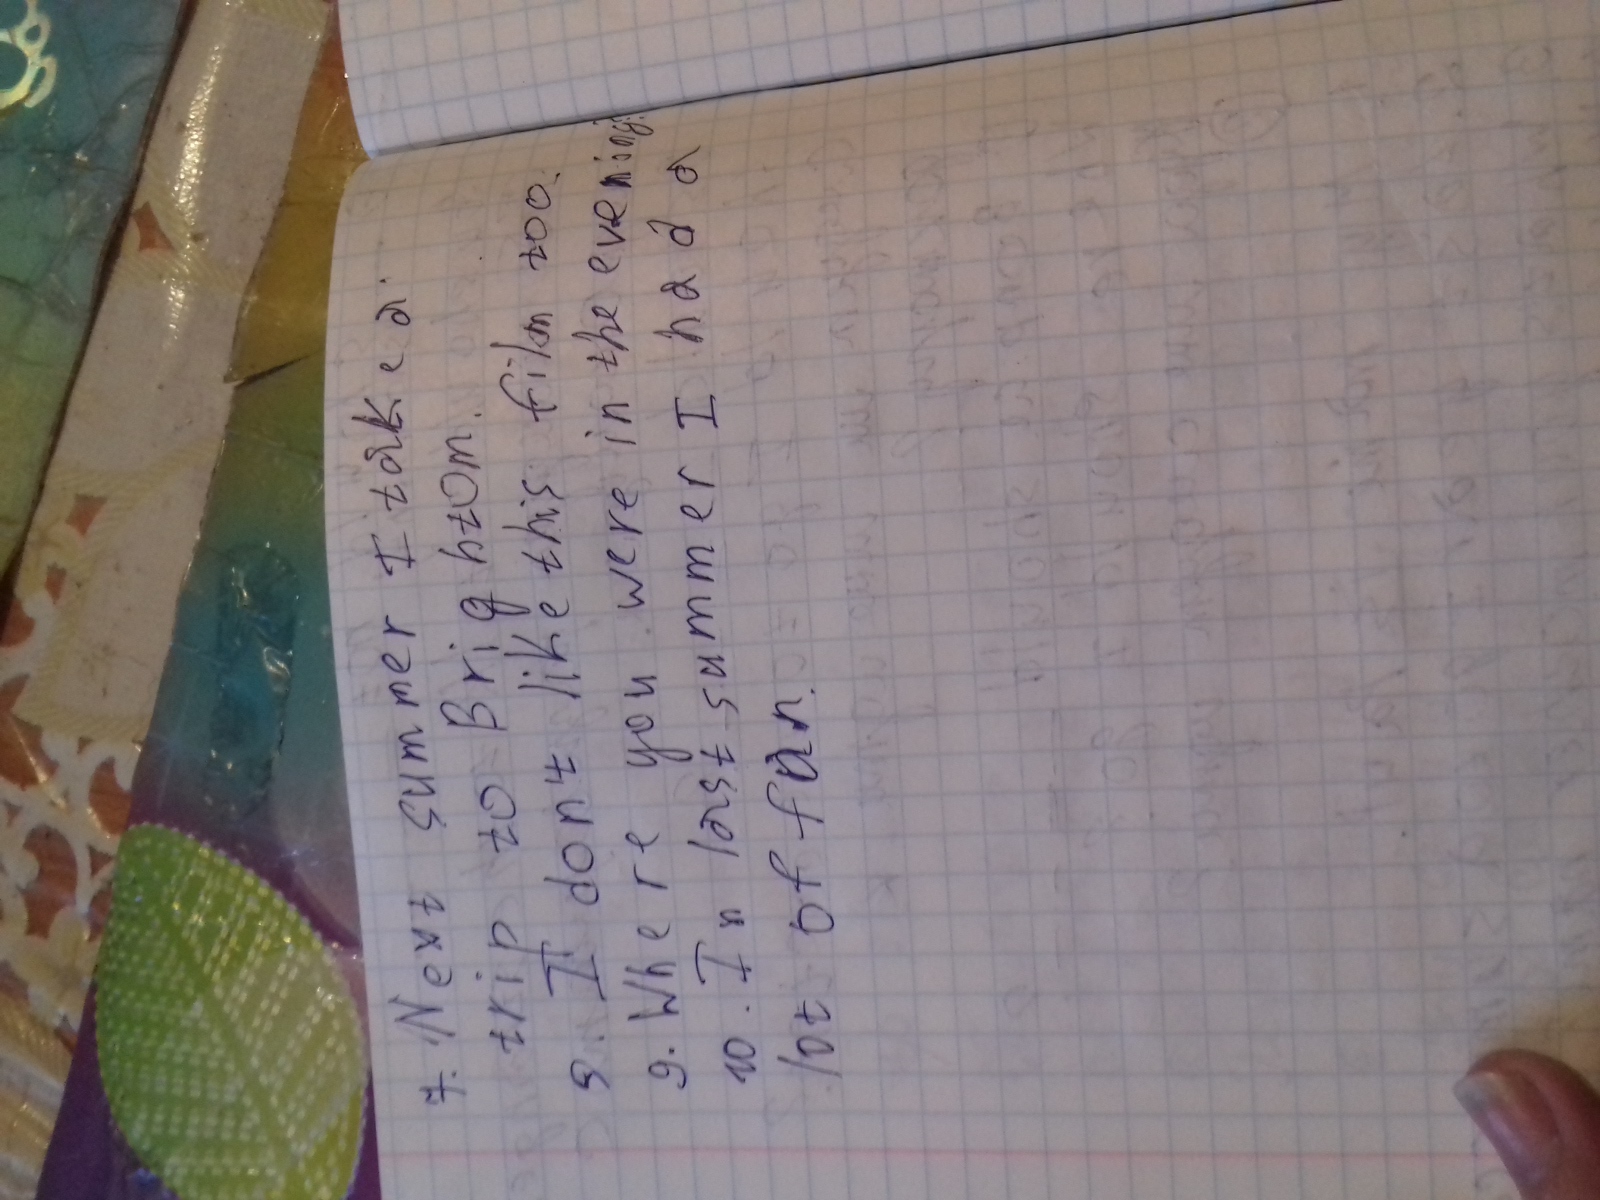 7. Next summer I taked a
trip to Brighton.
9. I dont like this film too.
9. Where you were in the evening?
10. In last summer I had a
lot of fan.